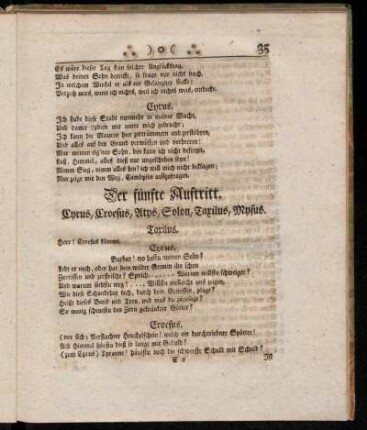 )o( 35
Es wäre dieser Tag kein solcher Unglückstag.
Was deinen Sohn betrifft, so frage mir nicht nach,
In welchem Winkel er als ein Gefangner stecke:
Verzeih mirs, wenn ich nichts, weil ich nichts was, entdecke.
Cyrus.
Ich habe diese Stadt nunmehr in meiner Macht,
Und damit Lydien mit unter mich gebracht;
Ich kann die Mauren hier zertrümmern und zerstöhren,
Und alles auf den Grund verwüsten und verheeren!
Nur meinen eignen Sohn, den kann ich nicht befreyn.
Laß, Himmel, alles dieß nur ungeschehen seyn!
Nimm Sieg, nimm alles hin! ich will mich nicht beklagen;
Nur zeige mir den Weg, Cambysen auszufragen.
Der fünfte Auftritt.
Cyrus, Croesus, Atys, Solon, Taxilus, Mysus.
Taxilus.
Herr! Croesus kömmt.
Cyrus.
Barbar! wo hastu meinen Sohn?
Lebt er noch, oder hat dein wilder Grimm ihn schon
Zerrissen und zerfleischt? Sprich..... Warum willstu schweigen?
Und warum siehstu weg?... Willstu vielleicht uns zeigen,
Wie diese Schandthat dich, durch dein Gewissen, plagt?
Heißt dieses Bund und Treu, und was du zugesagt?
So wenig scheuestu den Zorn gekränkter Götter?
Croesus.
(vor sich) Verfluchter Heuchelschein! welch ein durchtriebner Spötter!
Ach Himmel hörestu dieß so lange mit Geduld?
(zum Cyrus) Tyrann! häufestu noch die schwerste Schuld mit Schuld?
Ist